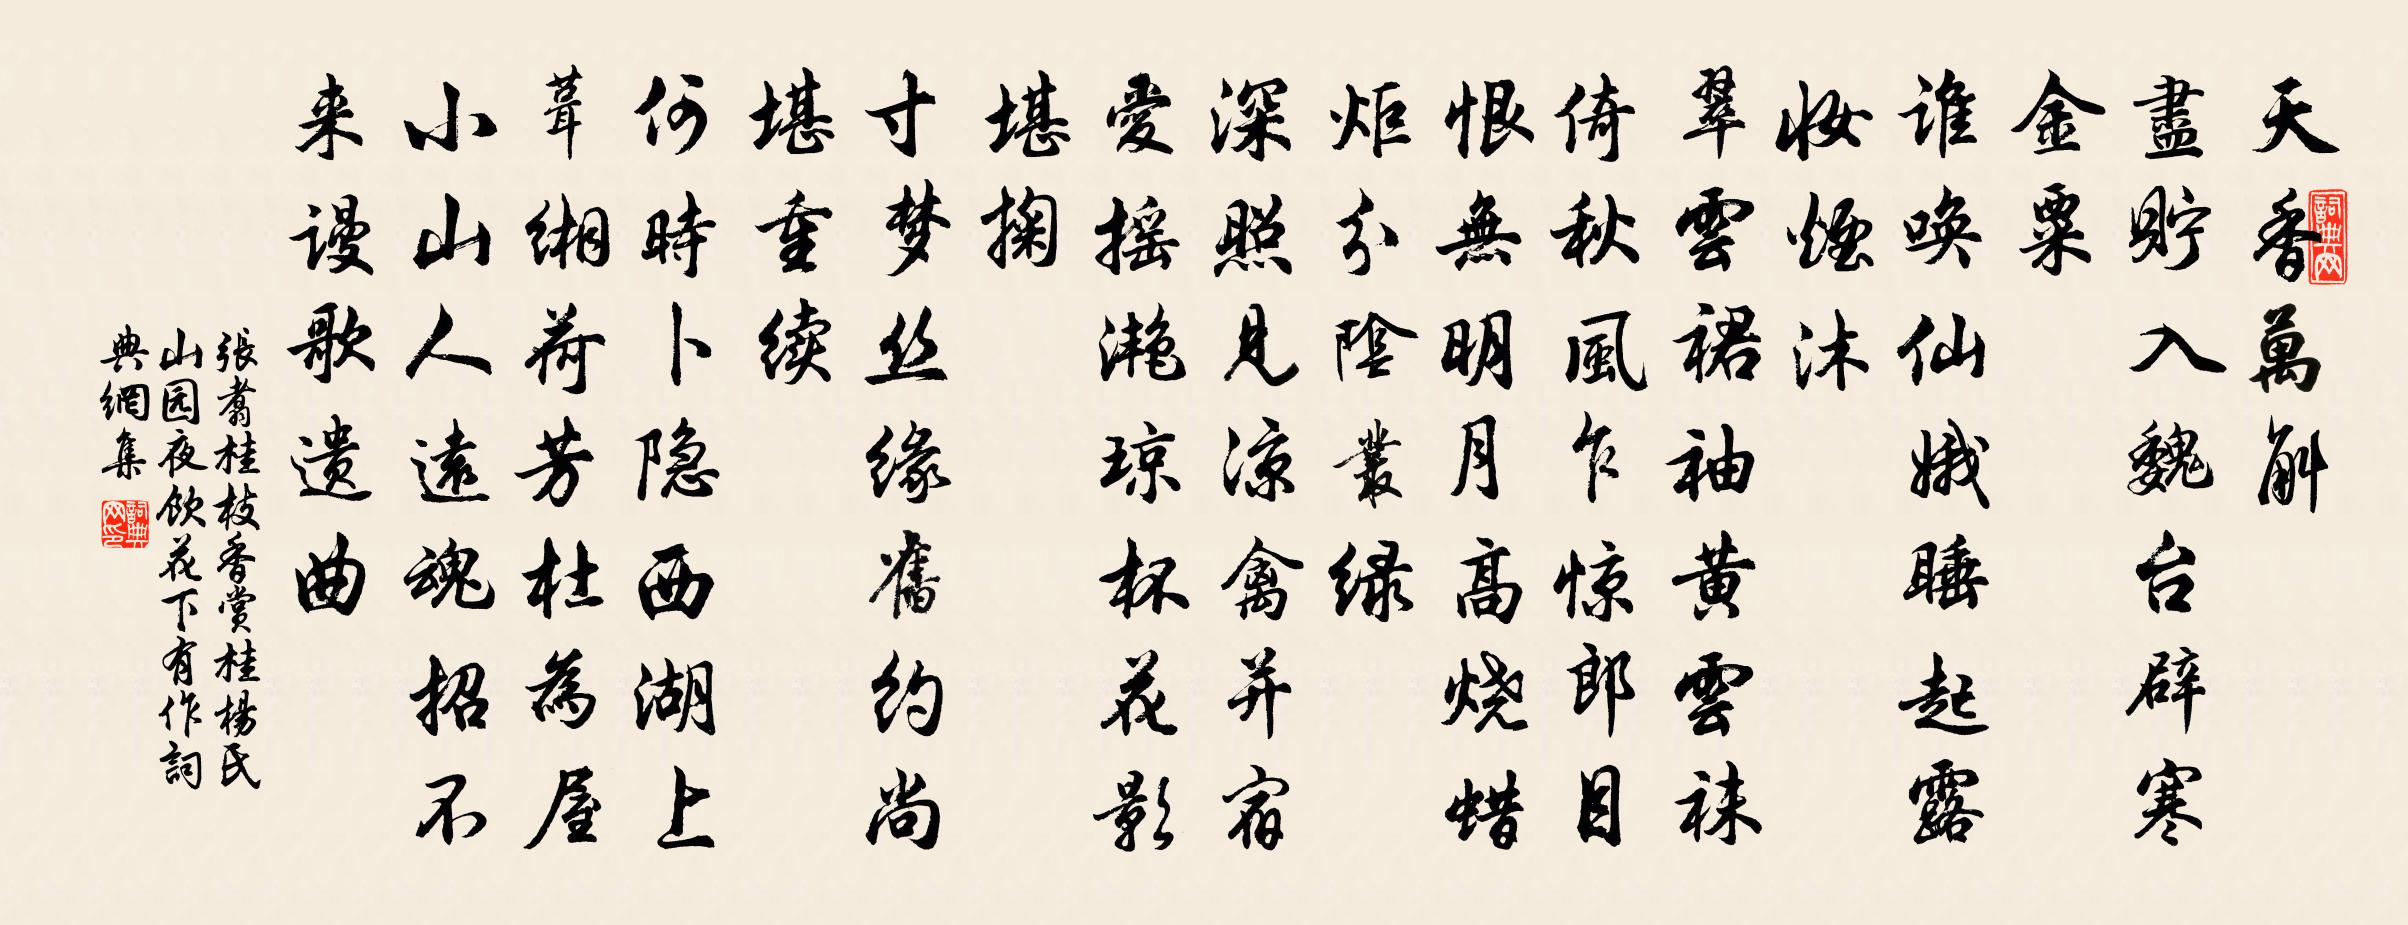 天香萬斛
盡貯入魏台辟寒
金粟
谁唤仙娥睡起露
妝煙沐
翠雲裙袖黄雲袜
倚秋風乍惊郎目
恨無明月高烧蜡
炬分陰叢绿
深照見凉禽并宿
愛摇滟琼杯花影
堪掬
寸梦丝缘舊约尚
堪重续
何時卜隐西湖上
葺缃荷芳杜為屋
小山人遠魂招不
来谩歌遗曲
張翥桂枝香赏桂楊氏
山园夜飲花下有作詞
典網集
詞典网
詞典网印